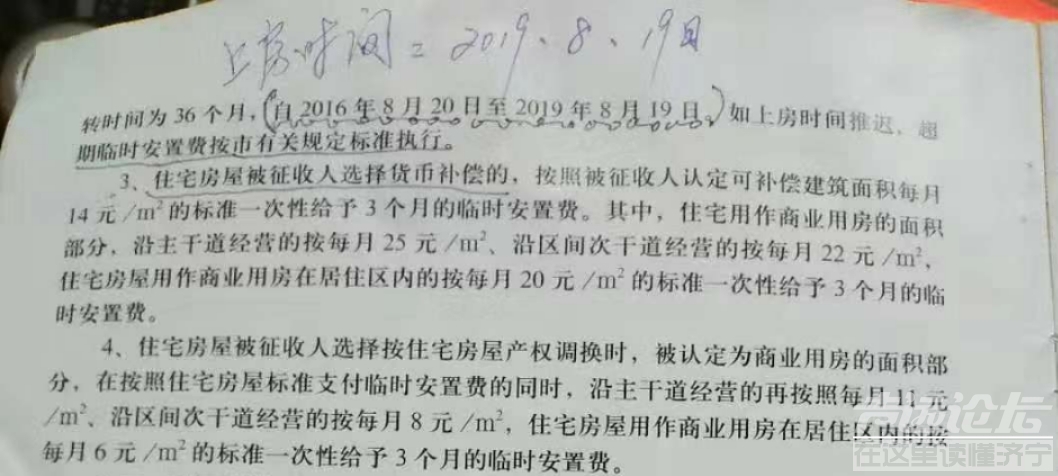 上房时间=2019、8、19日
转时间为36个月,(自2016年8月20日至2019年8月19日。)如上房时间推迟,超
期临时安置费按市有关规定标准执行。
3、住宅房屋被征收人选择货币补偿的,按照被征收人认定可补偿建筑面积每月
14元/m²的标准一次性给予3个月的临时安置费。其中,住宅用作商业用房的面积
部分,沿主干道经营的按每月25元/m²、沿区间次干道经营的按每月22元/m²,
住宅房屋用作商业用房在居住区内的按每月20元/m²的标准一次性给予3个月的临
时安置费。
4、住宅房屋被征收人选择按住宅房屋产权调换时,被认定为商业用房的面积部
分,在按照住宅房屋标准支付临时安置费的同时,沿主干道经营的再按照每月11元
/m²、沿区间次干道经营的按每月8元/m²,住宅房屋用作商业用房在居住区内的按
每月6元/m²的标准一次性给予3个月的临时安置费。
论坛
在这里读懂济宁